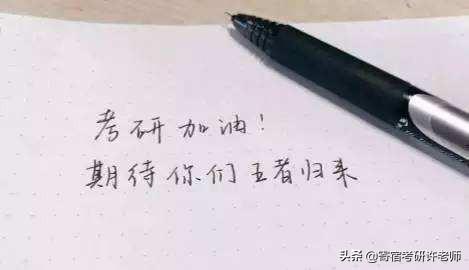 考研加油!
期待你们王者归来
头条 @寄宿考研许老师